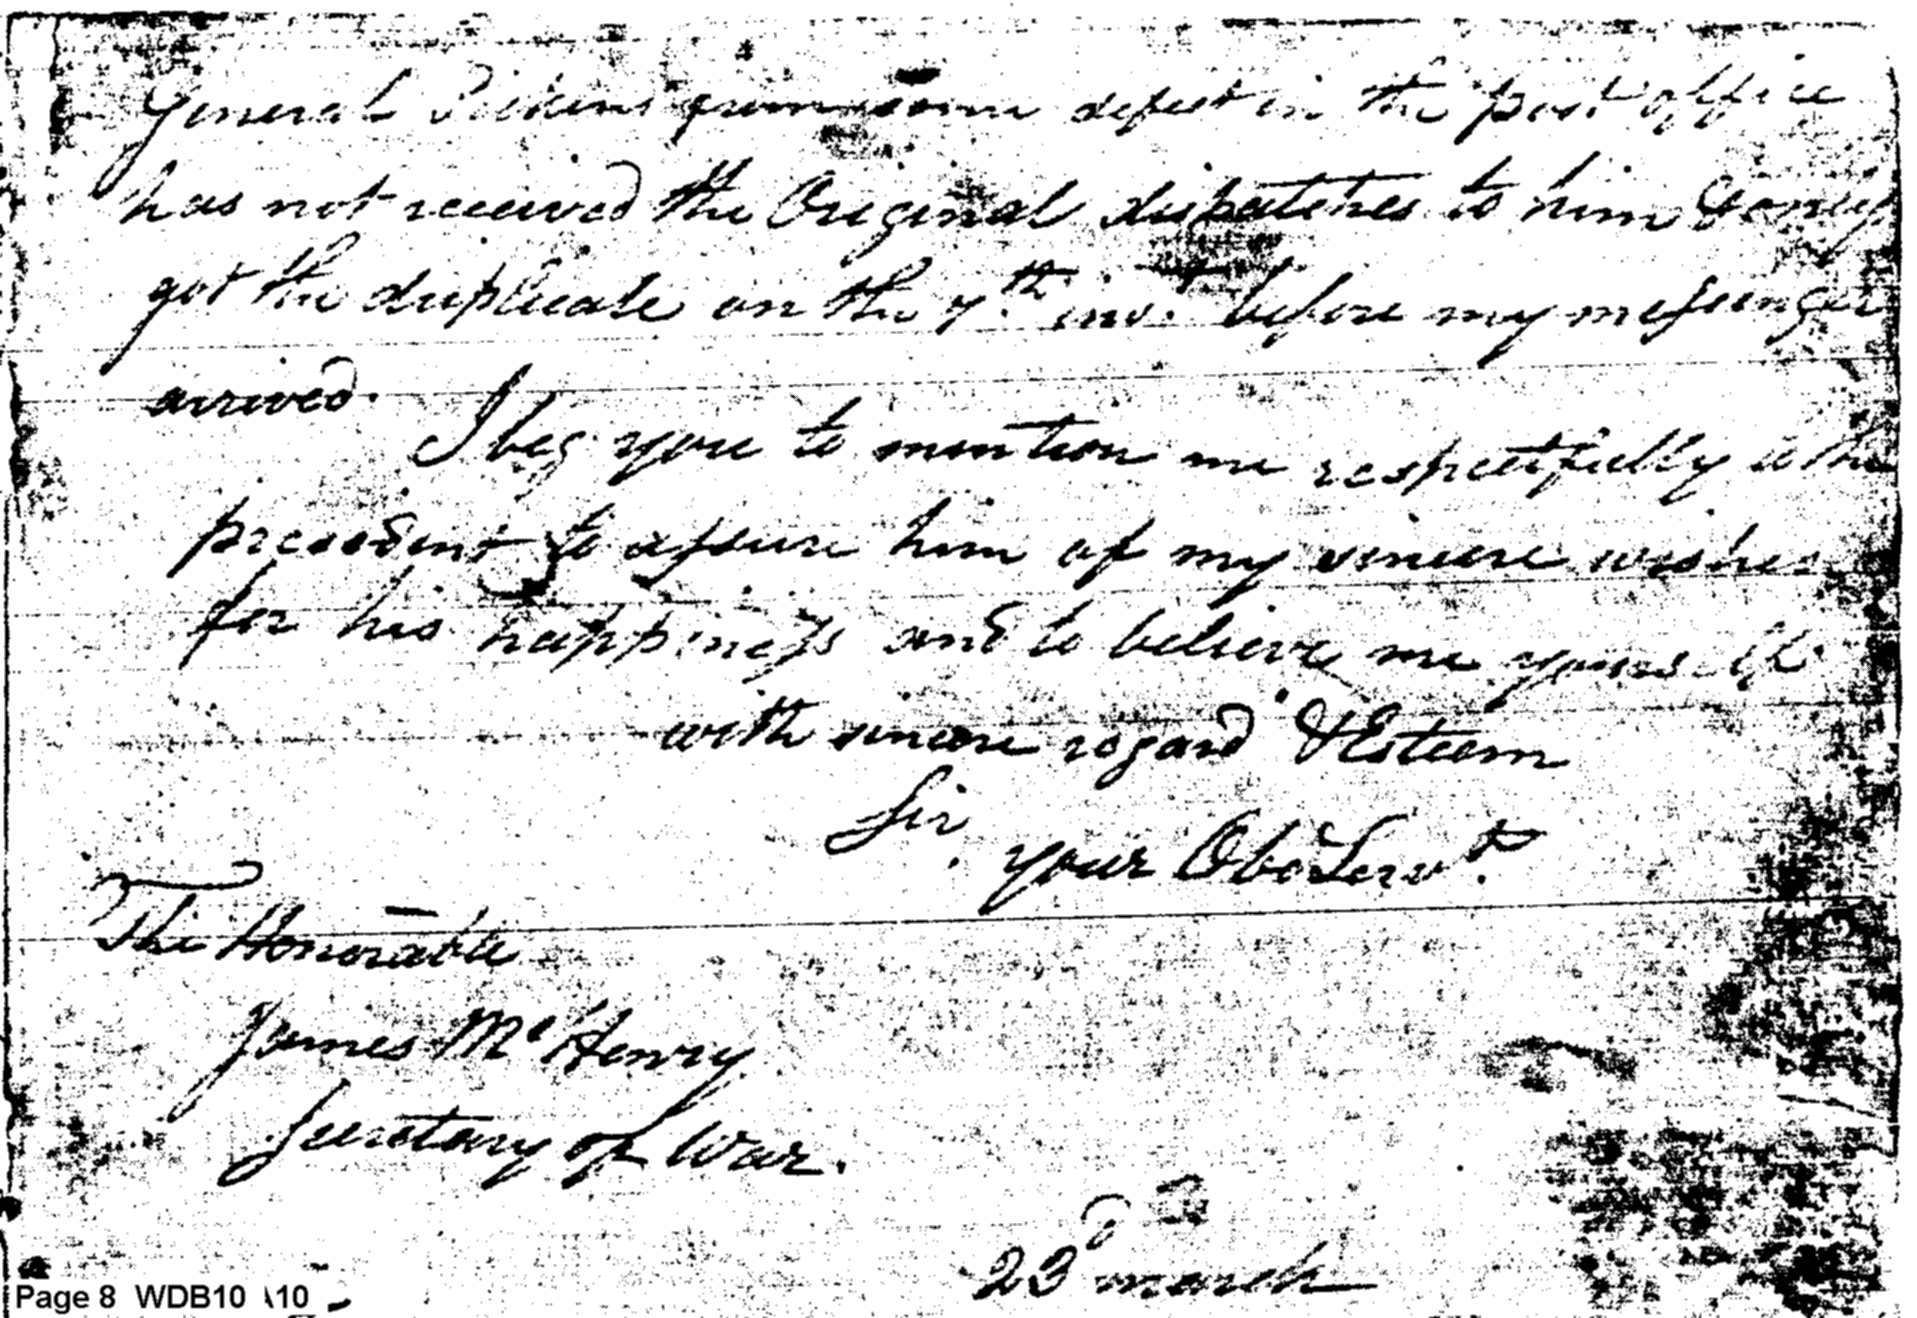 General Pickens from some defect in the post office
has not received the Original dispatches to him & only
got the duplicate on the 7.th ins.t before my messenger
arrived.
I beg you to mention me respectfully to the
president to assure him of my sincere wishes
for his happiness and to believe me yourself
with sincere regard & Esteem
Sir
your Obd Serv.t
The Honorable
James Mc Henry
Secretary of War.
23d march
Page 8 WDB10 \10